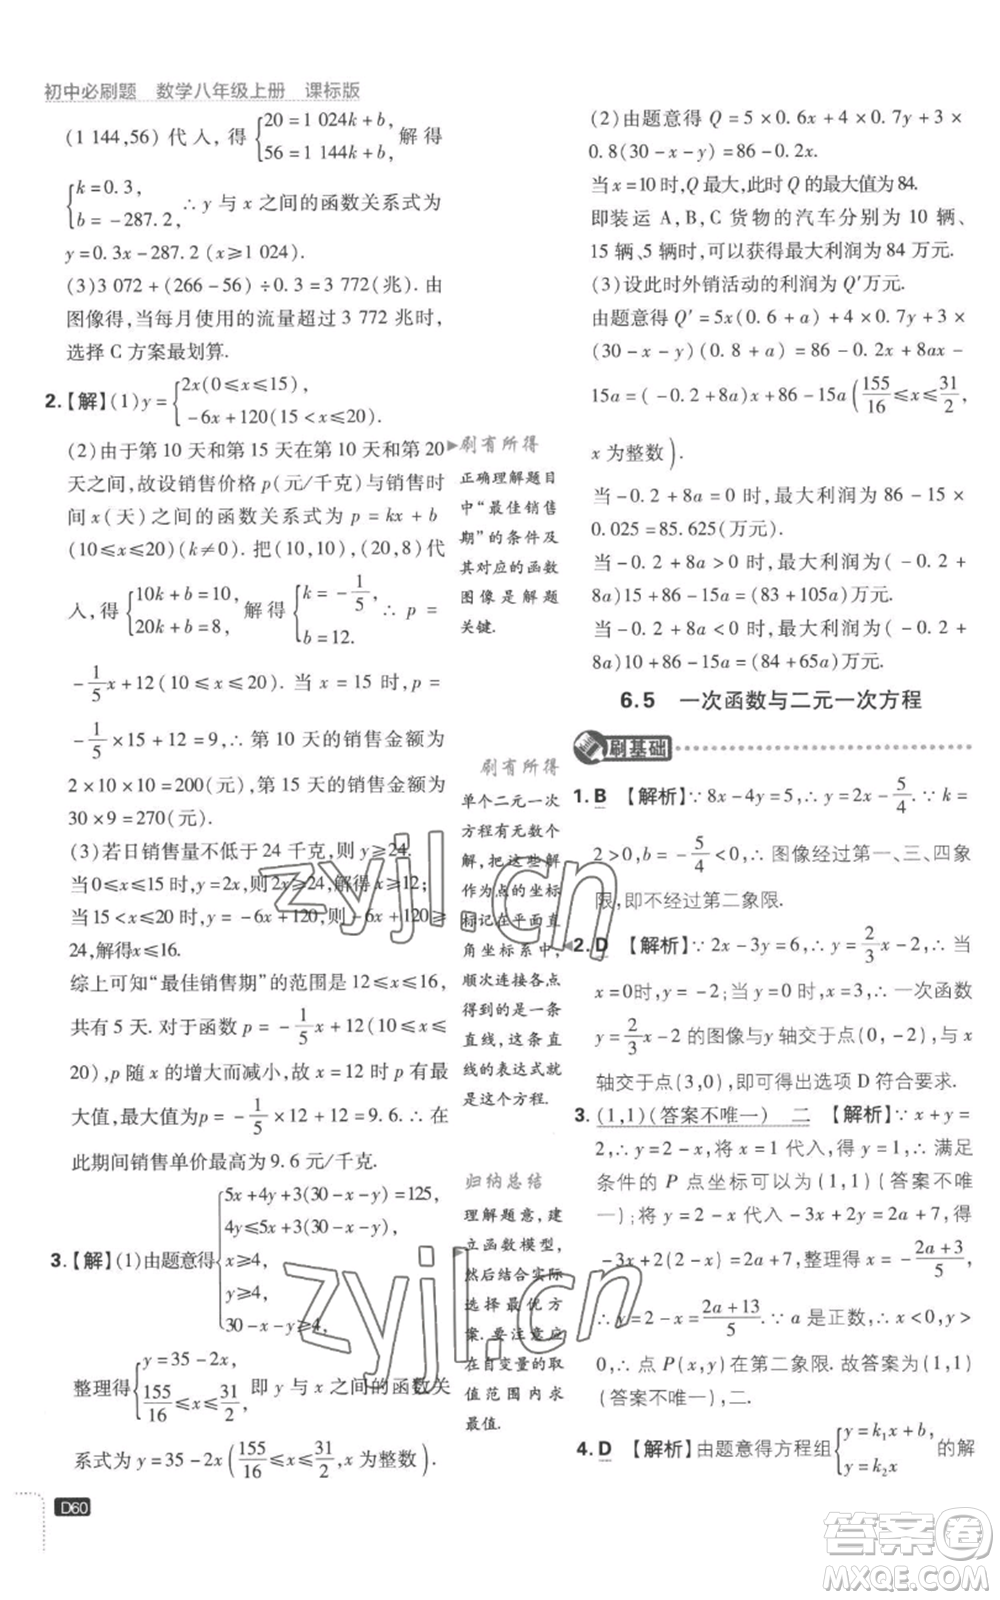 初中必刷题 数学八年级上册 课标版
(1 144,56)代入,得{20=1 024k+b, 56=1 144k+b,解得
{k=0.3, b=-287.2,∴y与x之间的函数关系式为
y=0.3x-287.2(x≥1 024).
(3)3 072+(266-56)÷0.3=3 772(兆).由
图像得,当每月使用的流量超过3 772兆时,
选择C方案最划算.
2.【解】(1)y={2x(0≤x≤15), -6x+120(15<x≤20).
(2)由于第10天和第15天在第10天和第20
天之间,故设销售价格p(元/千克)与销售时
间x(天)之间的函数关系式为p=kx+b
(10≤x≤20)(k≠0).把(10,10),(20,8)代
入,得{10k+b=10, 20k+b=8,解得{k=-1/5, b=12.∴p=
-1/5x+12(10≤x≤20),当x=15时,p=
-1/5×15+12=9,∴第10天的销售金额为
2×10×10=200(元),第15天的销售金额为
30×9=270(元).
(3)若日销售量不低于24千克,则y≥24.
当0≤x≤15时,y=2x,则2x≥24,解得x≥12;
当15<x≤20时,y=-6x+120,则-6x+120≥
24,解得x≤16.
综上可知“最佳销售期”的范围是12≤x≤16,
共有5天.对于函数p=-1/5x+12(10≤x≤
20),p随x的增大而减小,∴当x=12时p有最
大值,最大值为p=-1/5×12+12=9.6,故在
此期间销售单价最高为9.6元/千克.
3.【解】(1)由题意得{5x+4y+3(30-x-y)=125, 4y≤5x+3(30-x-y), x≥4, y≥4, 30-x-y≥4,
整理得{y=35-2x, 155/16≤x≤31/2,即y与x之间的函数关
系式为y=35-2x(155/16≤x≤31/2,x为整数).
D60
刷有所得
正确理解题目
中“最佳销售
期”的条件及
其对应的函数
图像是解题
关键.
刷有所得
单个二元一次
方程有无数个
解,把这些解
作为点的坐标
标记在平面直
角坐标系中,
顺次连接所
得到的是一条
直线,这条直
线的表达式就
是这个方程.
归纳总结
理解题意,建
立函数模型,
然后结合实际
选择最优方
案.要注意应
在自变量的取
值范围内求
最值.
(2)由题意得Q=5×0.6x+4×0.7y+3×
0.8(30-x-y)=86-0.2x.
当x=10时,Q最大,此时Q的最大值为84.
即装运A、B、C货物的汽车分别为10辆、
15辆、5辆时,可以获得最大利润为84万元.
(3)设此时外销活动的利润为Q′万元.
由题意得Q′=5x(0.6+a)+4×0.7y+3×
(30-x-y)(0.8+a)=86-0.2x+8ax-
15a=(-0.2+8a)x+86-15a(155/16≤x≤31/2,
x为整数).
当-0.2+8a=0时,最大利润为86-15×
0.025=85.625(万元).
当-0.2+8a>0时,最大利润为(-0.2+
8a)15+86-15a=(83+105a)万元.
当-0.2+8a<0时,最大利润为(-0.2+
8a)10+86-15a=(84+65a)万元.
6.5 一次函数与二元一次方程
刷基础
1.B 【解析】∵8x-4y=5,∴y=2x-5/4.∵k=
2>0,b=-5/4<0,∴图像经过第一、三、四象
限,即不经过第二象限.
2.D 【解析】∵2x-3y=6,∴y=2/3x-2,∴当
x=0时,y=-2;当y=0时,x=3,∴一次函数
y=2/3x-2的图像与y轴交于点(0,-2),与x
轴交于点(3,0),即可得出选项D符合要求.
3.(1,1)(答案不唯一) 二 【解析】∵x+y=
2,∴y=2-x,将x=1代入得y=1,∴满足
条件的P点坐标可以为(1,1)(答案不唯
一);将y=2-x代入-3x+2y=2a+7,得
-3x+2(2-x)=2a+7,整理得x=-(2a+3)/5,
∴y=2-x=(2a+13)/5.∵a是正数,∴x<0,y>
0,∴点P(x,y)在第二象限.故答案为(1,1)
(答案不唯一),二.
4.D 【解析】由题意得方程组{y=k₁x+b, y=k₂x的解
zyjl.cn
zyjl.cn
答案卷
MXQE.COM